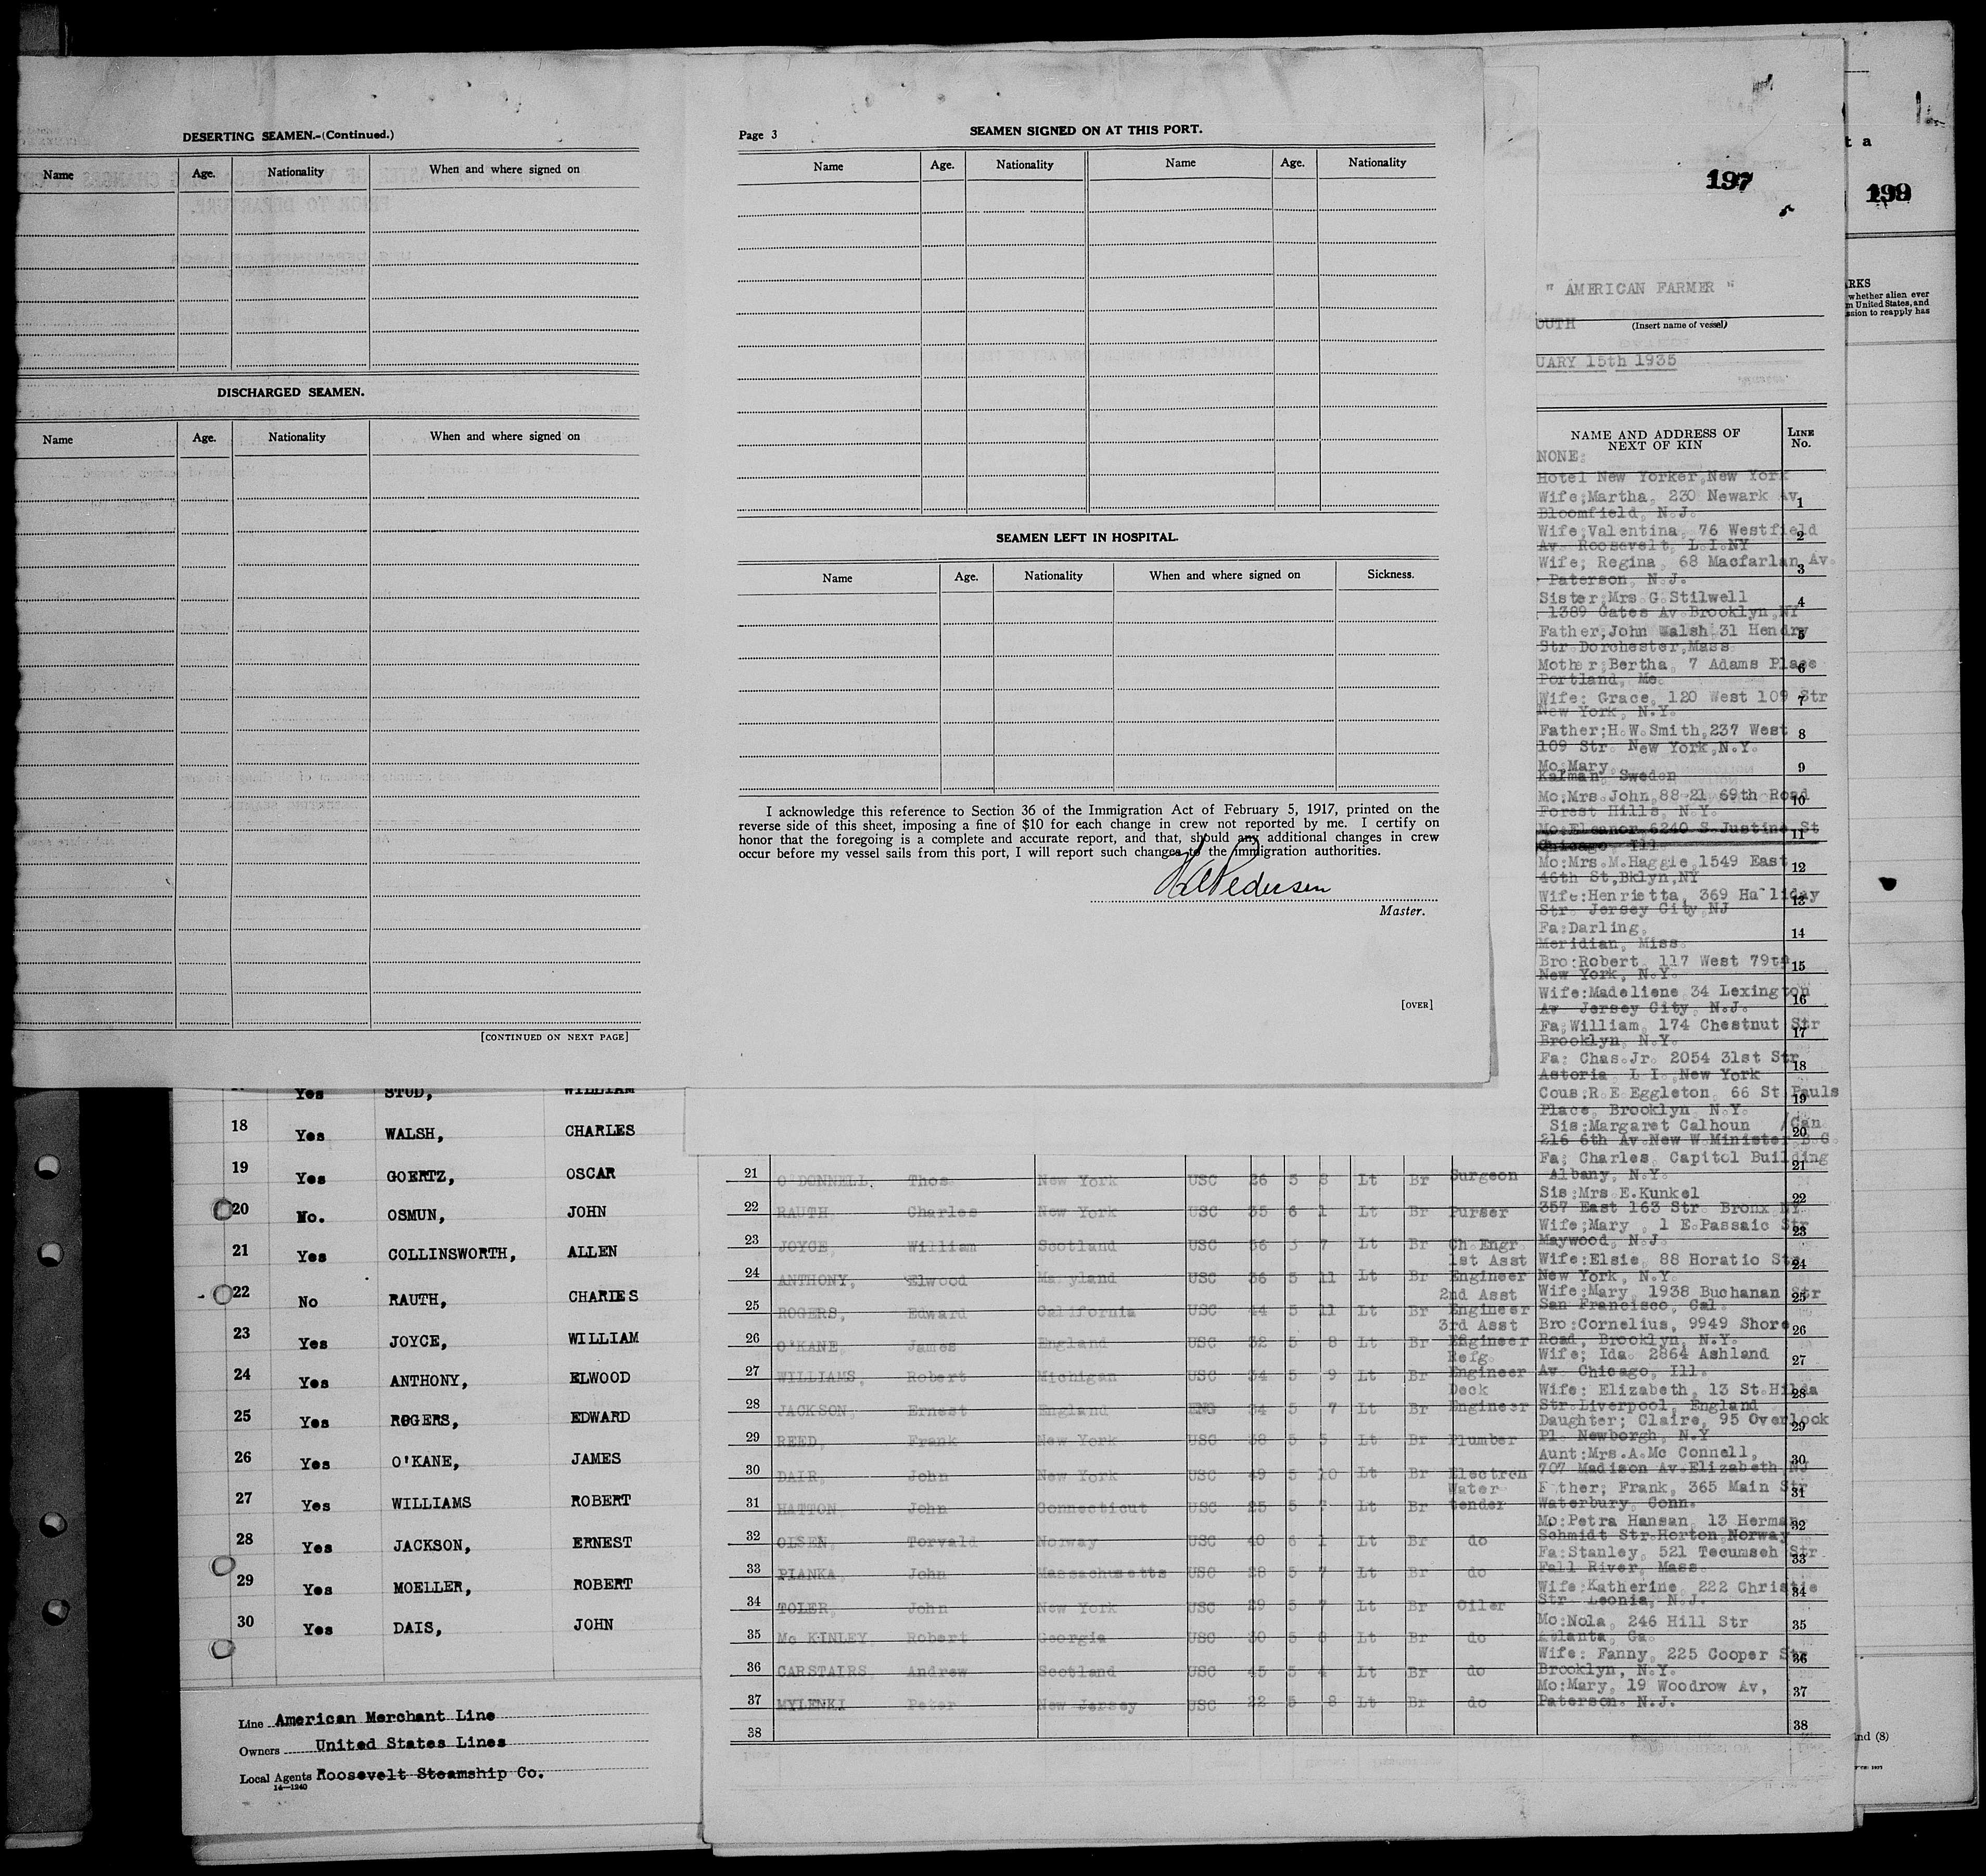 DESERTING SEAMEN.-(Continued.)
Name Age. Nationality When and where signed on
DISCHARGED SEAMEN.
Name Age. Nationality When and where signed on
[CONTINUED ON NEXT PAGE]
Page 3 SEAMEN SIGNED ON AT THIS PORT.
Name Age. Nationality Name Age. Nationality
SEAMEN LEFT IN HOSPITAL.
Name Age. Nationality When and where signed on Sickness.
I acknowledge this reference to Section 36 of the Immigration Act of February 5, 1917, printed on the
reverse side of this sheet, imposing a fine of $10 for each change in crew not reported by me. I certify on
honor that the foregoing is a complete and accurate report, and that, should any additional changes in crew
occur before my vessel sails from this port, I will report such changes to the immigration authorities.
Pedersen
Master.
[OVER]
197
" AMERICAN FARMER "
OUTH (Insert name of vessel)
UARY 15th 1935
NAME AND ADDRESS OF NEXT OF KIN LINE No.
NONE:
Hotel New Yorker, New York
Wife;Martha, 230 Newark Av 1
Bloomfield, N.J.
Wife;Valentina, 76 Westfield 2
Av Roosevelt, L.I.NY
Wife; Regina, 68 Macfarlan Av. 3
Paterson, N.J.
Sister;Mrs G.Stilwell 4
1389 Gates Av Brooklyn,NY
Father,John Walsh 31 Hendry 5
Str Dorchester,Mass
Mother;Bertha, 7 Adams Place 6
Portland, Me.
Wife: Grace, 120 West 109 Str 7
New York, N.Y.
Father;H.W.Smith,237 West 8
109 Str. New York,N.Y.
Mo:Mary, 9
Kalman, Sweden
Mo:Mrs.John,88-21 69th Road 10
Forest Hills, N.Y.
Mo:Eleanor,6240 S.Justine St 11
Chicago, Ill.
Mo:Mrs.M.Haggie,1549 East 12
46th St,Bklyn,NY
Wife:Henrietta, 369 Halliday 13
Str. Jersey City,NJ
Fa:Darling, 14
Meridian, Miss.
Bro:Robert, 117 West 79th 15
New York, N.Y.
Wife:Madeliene 34 Lexington 16
Av Jersey City, N.J.
Fa;William, 174 Chestnut Str 17
Brooklyn, N.Y.
Fa: Chas.Jr. 2054 31st Str. 18
Astoria L I.,New York
Cous:R.E.Eggleton, 66 St.Pauls 19
Place, Brooklyn N.Y.
Sis:Margaret Calhoun /Can. 20
216 6th Av.New W.Minister B.C.
Fa; Charles, Capitol Building 21
Albany, N.Y.
Sis:Mrs E.Kunkel 22
357 East 163 Str. Bronx NY
Wife;Mary , 1 E.Passaic Str 23
Maywood, N.J.
Wife:Elsie, 88 Horatio Str. 24
New York, N.Y.
Wife:Mary, 1938 Buchanan Str 25
San Francisco, Cal.
Bro:Cornelius, 9949 Shore 26
Road, Brooklyn, N.Y.
Wife; Ida. 2864 Ashland 27
Av Chicago, Ill.
Wife: Elizabeth, 13 St.Hilda 28
Str.Liverpool, England
Daughter; Claire, 95 Overlook 29
Pl. Newborgh, N.Y
Aunt:Mrs.A.Mc Connell, 30
707 Madison Av.Elizabeth NJ
Father; Frank, 365 Main Str 31
Waterbury, Conn.
Mo:Petra Hansan, 13 Herman 32
Schmidt Str.Horton,Norway
Fa:Stanley, 521 Tecumseh Str 33
Fall River, Mass.
Wife:Katherine, 222 Christie 34
Str. Leonia, N.J.
Mo:Nola, 246 Hill Str 35
Atlanta, Ga.
Wife: Fanny, 225 Cooper Str 36
Brooklyn, N.Y.
Mo:Mary, 19 Woodrow Av, 37
Paterson. N.J.
38
21 O'DONNELL, Thos New York USC 26 5 8 Lt Br Surgeon
22 RAUTH Charles New York USC 35 6 1 Lt Br Purser
23 JOYCE, William Scotland USC 56 5 7 Lt Br Ch.Engr.
24 ANTHONY, Elwood Maryland USC 36 5 11 Lt Br 1st Asst Engineer
25 ROGERS, Edward California USC 44 5 11 Lt Br 2nd Asst Engineer
26 O'KANE James England USC 32 5 8 Lt Br 3rd Asst Engineer
27 WILLIAMS, Robert Michigan USC 34 5 9 Lt Br Refg. Engineer
28 JACKSON, Ernest England ENG 34 5 7 Lt Br Deck Engineer
29 REED, Frank New York USC 38 5 5 Lt Br Plumber
30 DAIR, John New York USC 49 5 10 Lt Br Electron
31 HATTON, John Connecticut USC 25 5 7 Lt Br Water tender
32 OLSEN, Torvald Norway USC 40 6 1 Lt Br do
33 PIANKA, John Massachusetts USC 28 5 7 Lt Br do
34 TOLER, John New York USC 29 5 7 Lt Br Oiler
35 Mc KINLEY Robert Georgia USC 30 5 8 Lt Br do
36 CARSTAIRS, Andrew Scotland USC 45 5 4 Lt Br do
37 MYLENKI Peter New Jersey USC 22 5 8 Lt Br do
38
Yes STUD, WILLIAM
18 Yes WALSH, CHARLES
19 Yes GOERTZ, OSCAR
20 No. OSMUN, JOHN
21 Yes COLLINSWORTH, ALLEN
22 No RAUTH, CHARLES
23 Yes JOYCE, WILLIAM
24 Yes ANTHONY, ELWOOD
25 Yes ROGERS, EDWARD
26 Yes O'KANE, JAMES
27 Yes WILLIAMS ROBERT
28 Yes JACKSON, ERNEST
29 Yes MOELLER, ROBERT
30 Yes DAIS, JOHN
Line American Merchant Line
Owners United States Lines
Local Agents Roosevelt Steamship Co.
14-1240
t a
199
RKS
whether alien ever
m United States, and
ssion to reapply has
nd (8)